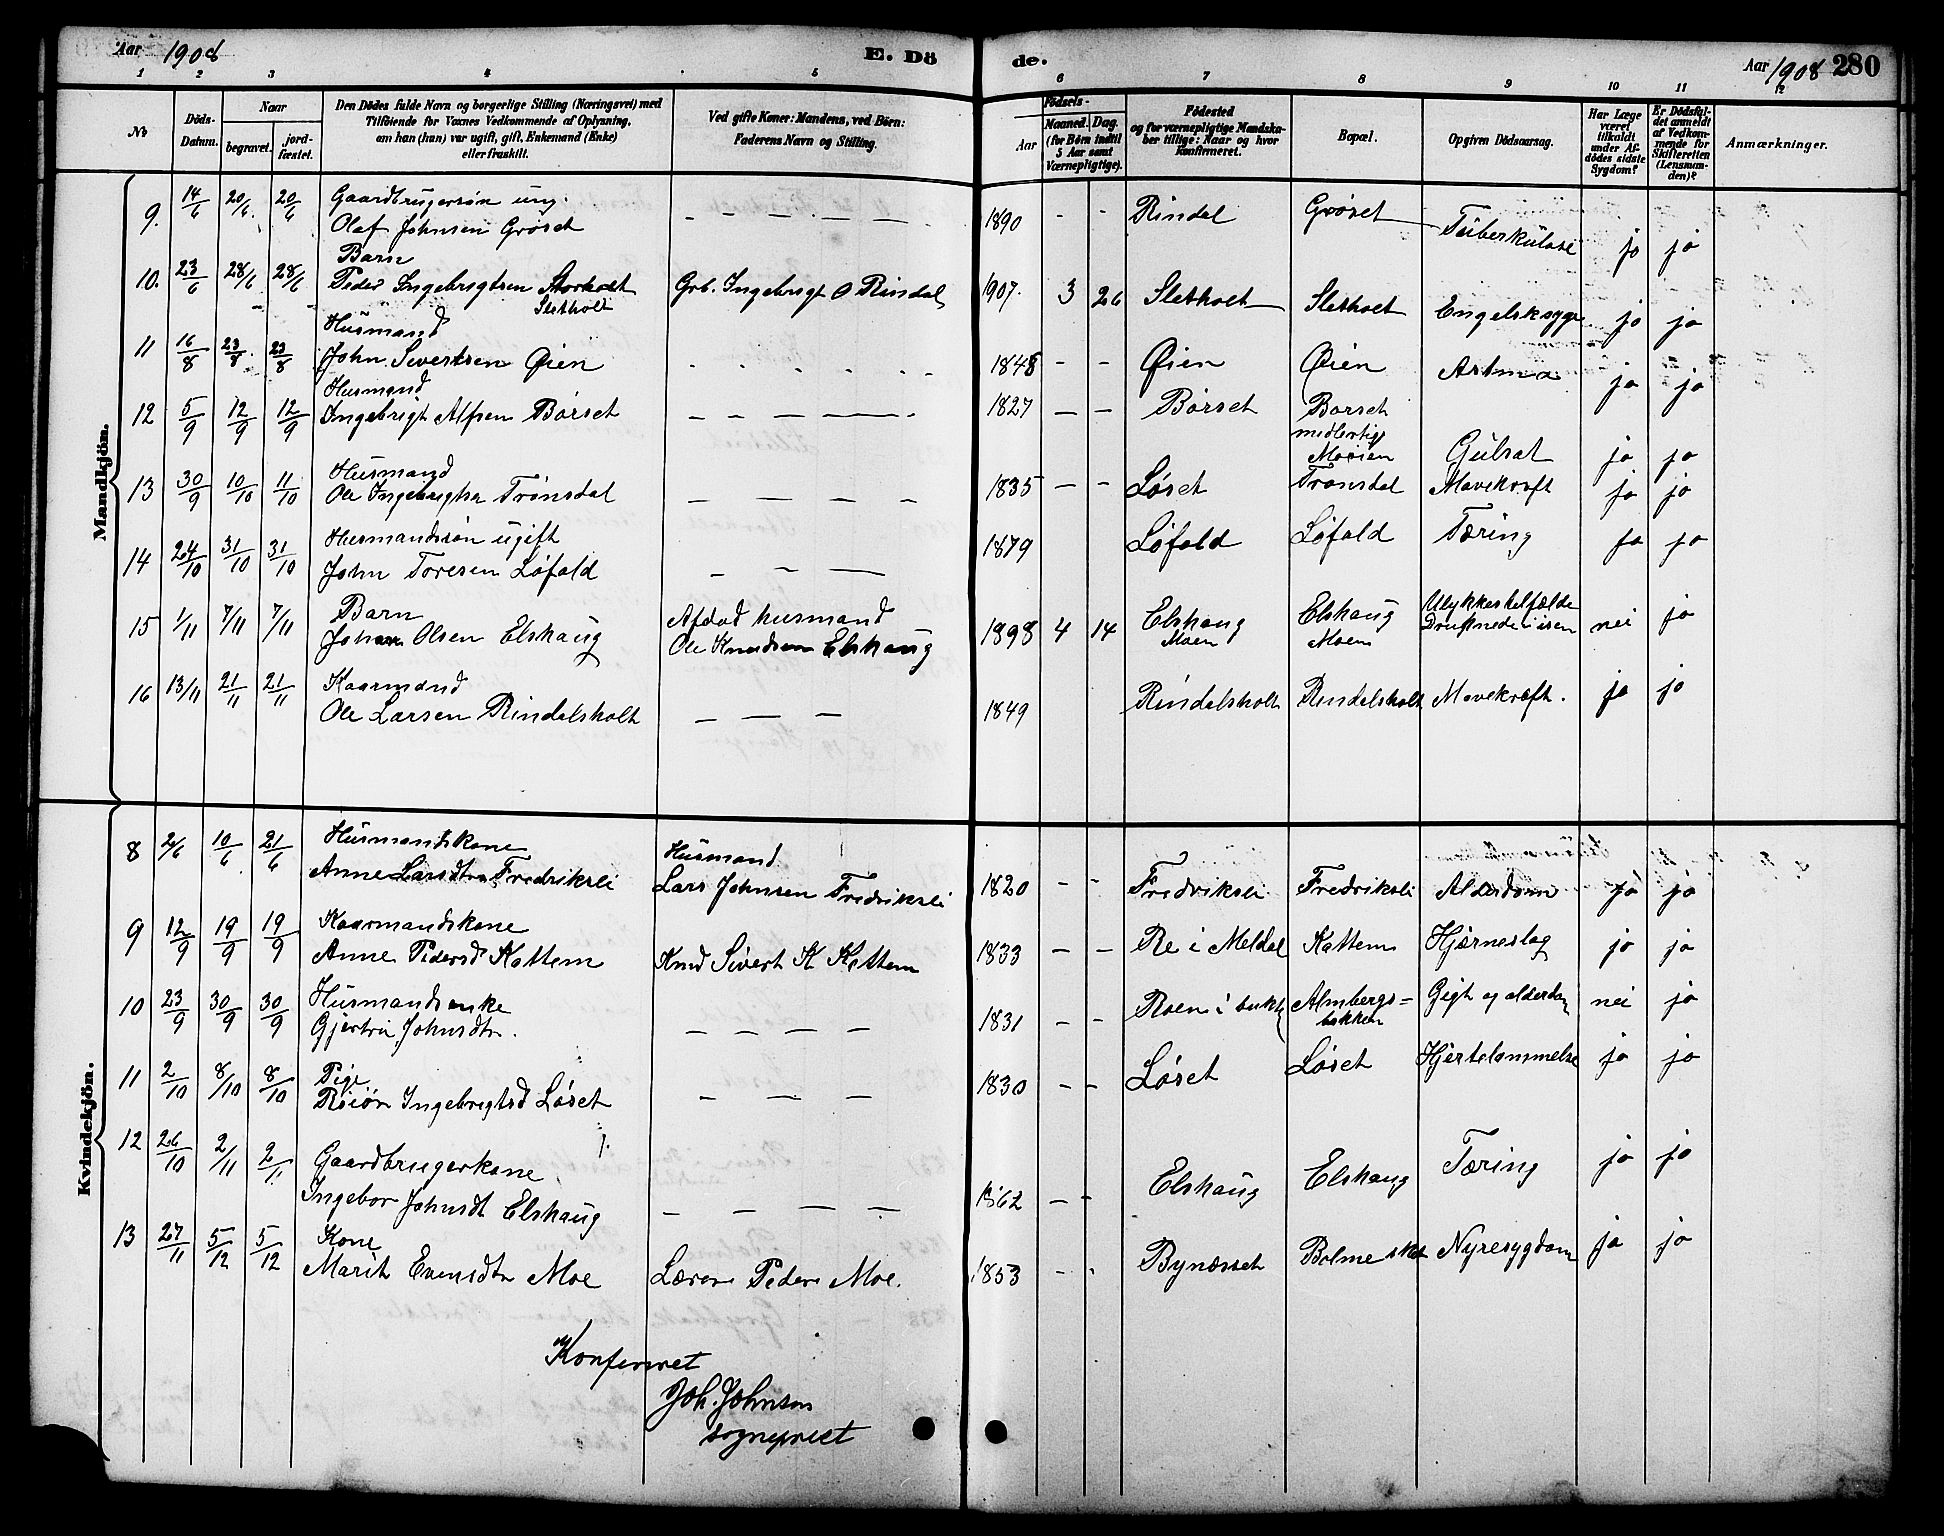 Aar 1908 E. Dö de. Aar 1908 280
1 2 3 4 5 6 7 8 9 10 11 12
No Döds-Datum. Naar begravet. jord-fæstet. Den Dödes fulde Navn og borgerlige Stilling (Næringsvei) med Tilföiende for Voxnes Vedkommende af Oplysning, om han (hun) var ugift, gift, Enkemand (Enke) eller fraskilt. Ved gifte Koner: Mandens, ved Börn: Faderens Navn og Stilling. Födsels- Aar Maaned. Dag. (for Börn indtil 5 Aar samt Værnepligtige). Födested og for værnepligtige Mandska-ber tillige: Naar og hvor konfirmeret. Bopæl. Opgiven Dödsaarsag. Har Læge været tilkaldt under Af-dödes sidste Sygdom? Er Dödsfal-det anmeldt af Vedkom-mende for Skifteretten (Lensman-den)? Anmærkninger.
Mandkjön.
9. 14/6 20/6. 20/6 Gaardbrugersön ung.
Olaf Johnsen Gröset — — — — — 1890 - - Rindal Gröset Tüberkülose jo jo
Barn
10. 23/6 28/6 28/6 Peder Ingebrigtsen Storholt Sletholt Grb. Ingebrigt O Rindal 1907. 3 26 Sletholt Sletholt Engelsksyge jo jo
Husmand
11 16/8 23/8 23/8 John Sivertsen Øien - - - - - 1848 - - Øien Øien Astma jo jo
Husmand
12 5/9 12/9 12/9 Ingebrigt Alfsen Börset — — — — 1827 — — Börset Börset
medlertig
Moeien Gülsot jo jo
Husmand
13 30/9 10/10 11/10 Ole Ingebrigtsn Trönsdal — — — — 1835 — - Löset Trönsdal Mavekræft jo jo
Husmandssön ugift
14 24/10 31/10 31/10 John Toresen Löfald — — — 1879 Löfald Löfald Tæring jo jo
Barn
15 1/11 7/11 7/11 Johan Olsen Elshaug Afdöd husmand
Ole Knudsen Elshaug 1898 4 14 Elshaug
Moen Elshaug
Moen Ulykkestilfælde
Druknede i isen nei jo
16 13/11 21/11 21/11 Kaarmand
Ole Larsen Rindalsholt — — — 1849 Rindalsholt Rindalsholt Mavekræft. jo jo
Kvindekjön.
8 2/6 10/6 21/6 Husmandskone
Anne Larsdtr Fredriksli Husmand
Lars Johnsen Fredriksli 1820 - - Fredriksli Fredriksli Alderdom jo jo
9 12/9 19/9 19/9 Kaarmandskone
Anne Pedersd Kattem Kmd Sivert K Kattem 1833 — — Re i Meldal Kattem Hjærneslag jo jo
10 23/9 30/9 30/9 Husmandsenke
Gjertru Johnsdtr. — — — — 1831 — — Roen i Almbergs=
bakken Gigt og alderdom nei jo
11 2/10 8/10 8/10 Pige
Röiör Ingebrigtsd Löset — — — 1830 — — Löset Löset Hjertelammelse jo jo
12 26/10 2/11 2/11 Gaardbrugerkone
Ingebor Johnsdt Elshaug — — — — 1862 — - Elshaug Elshaug Tæring jo jo
13 27/11 5/12 5/12 Kone
Marit Evensdtr Moe Lærer Peder Moe. 1853 - - Bynæsset Bolme Nyresygdom jo jo
Konfereret
Joh. Johnson
sogneprest